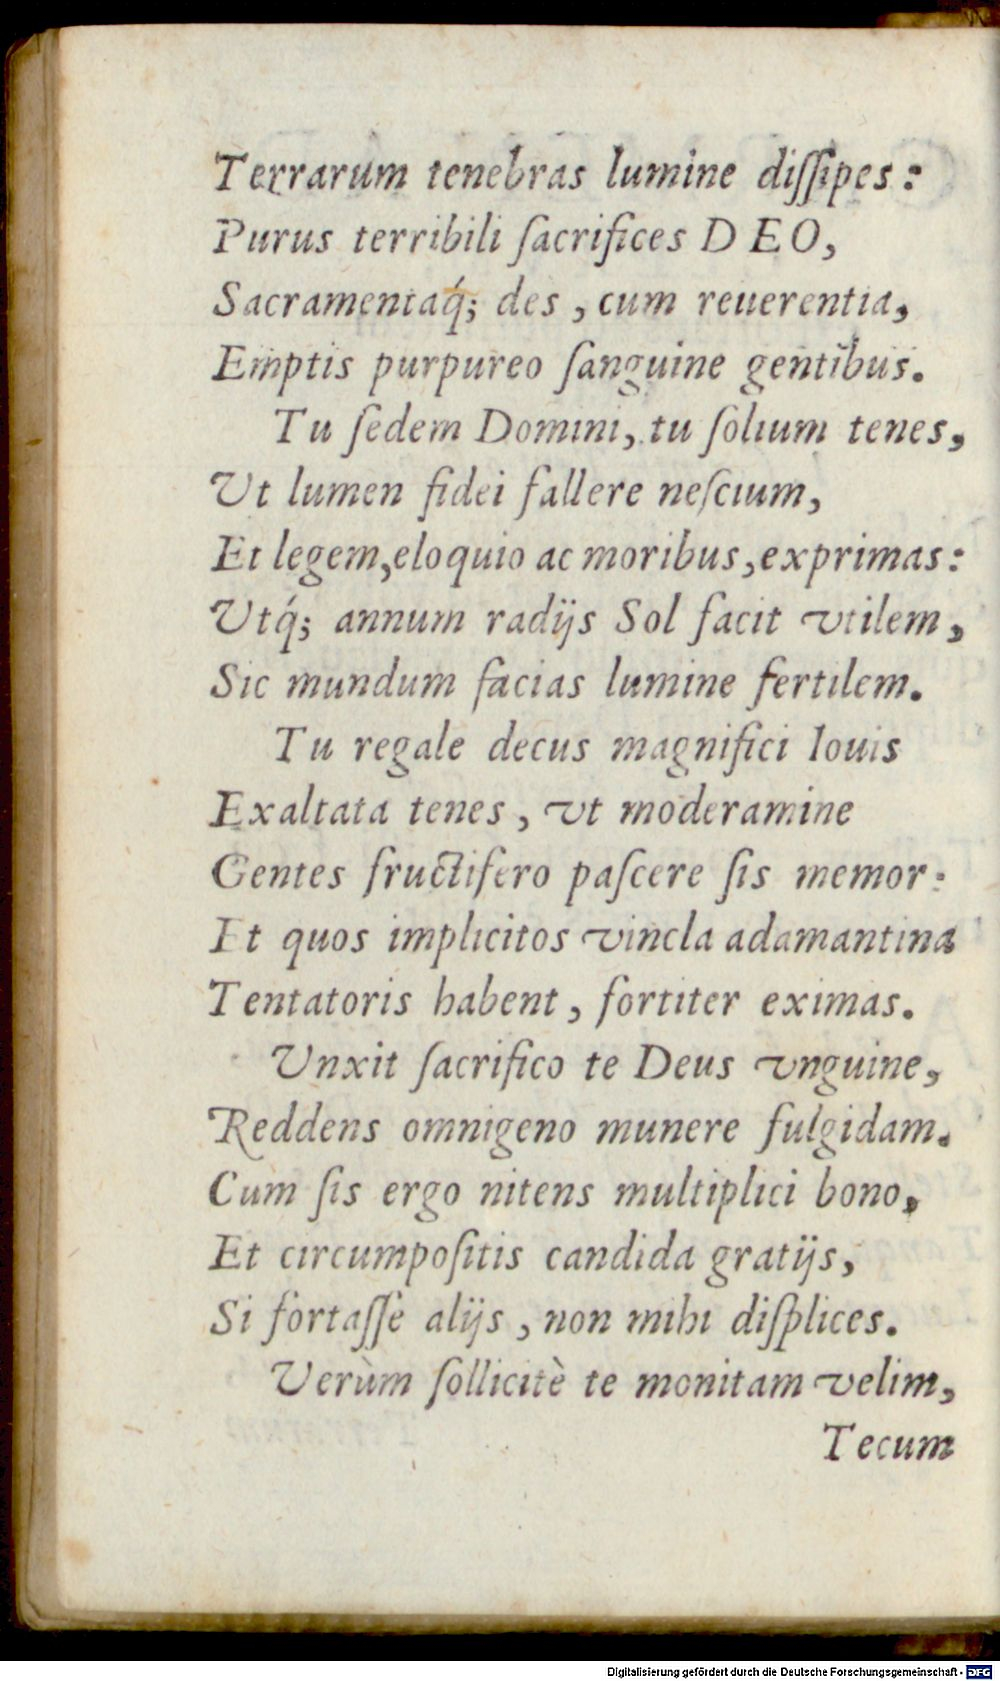 Terrarum tenebras lumine diſſipes:
Purus terribili ſacrifices DEO,
Sacramentaq́; des, cum reuerentia,
Emptis purpureo ſanguine gentibus.
Tu ſedem Domini, tu ſolium tenes,
Vt lumen fidei fallere neſcium,
Et legem, eloquio ac moribus, exprimas:
Vtq́; annum radijs Sol facit vtilem,
Sic mundum facias lumine fertilem.
Tu regale decus magnifici Iouis
Exaltata tenes, vt moderamine
Gentes fructifero paſcere ſis memor:
Et quos implicitos vincla adamantina
Tentatoris habent, fortiter eximas.
Vnxit ſacrifico te Deus vnguine,
Reddens omnigeno munere fulgidam.
Cum ſis ergo nitens multiplici bono,
Et circumpoſitis candida gratijs,
Si fortaſſè alijs, non mihi diſplices.
Verùm ſollicitè te monitam velim,
Tecum
Digitalisierung gefördert durch die Deutsche Forschungsgemeinschaft - DFG